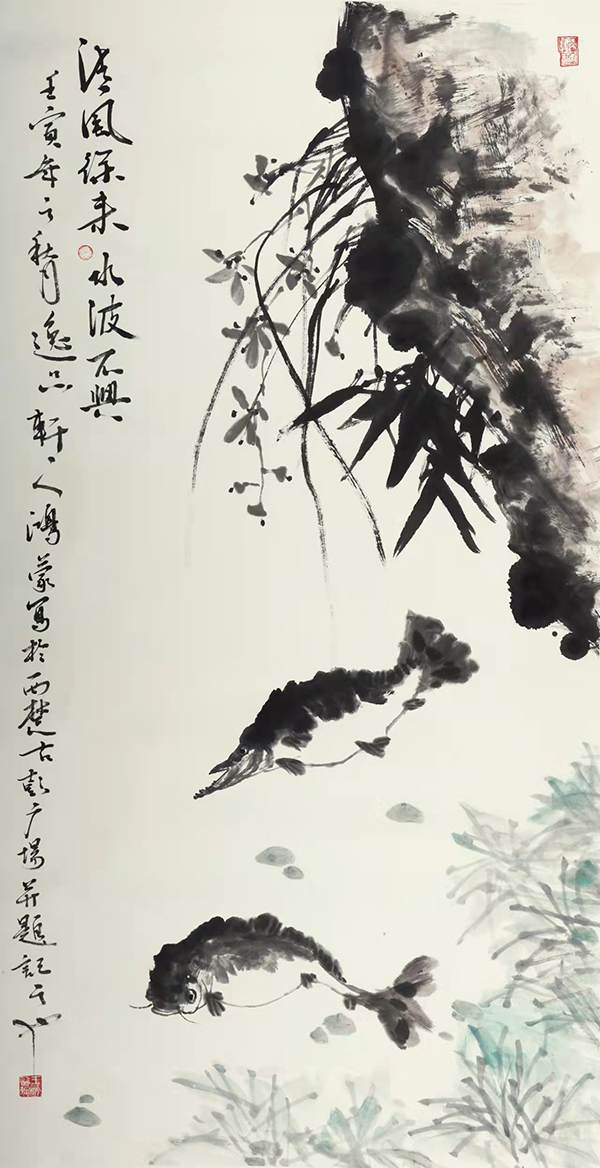 清風徐来水波不興
壬寅年之秋月逸品軒主人鴻蒙寫於西楚古彭广場并題記之也